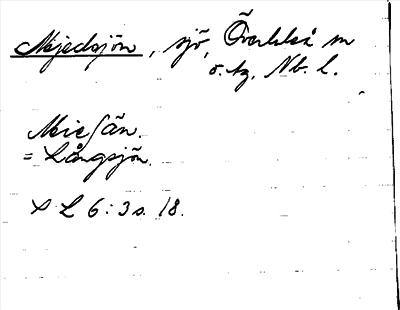 Mjedsjön, sjö, Överluleå sn
o. tg, Nb. l.
Miesān.
= Långsjön.
S L 6:3 s. 18.